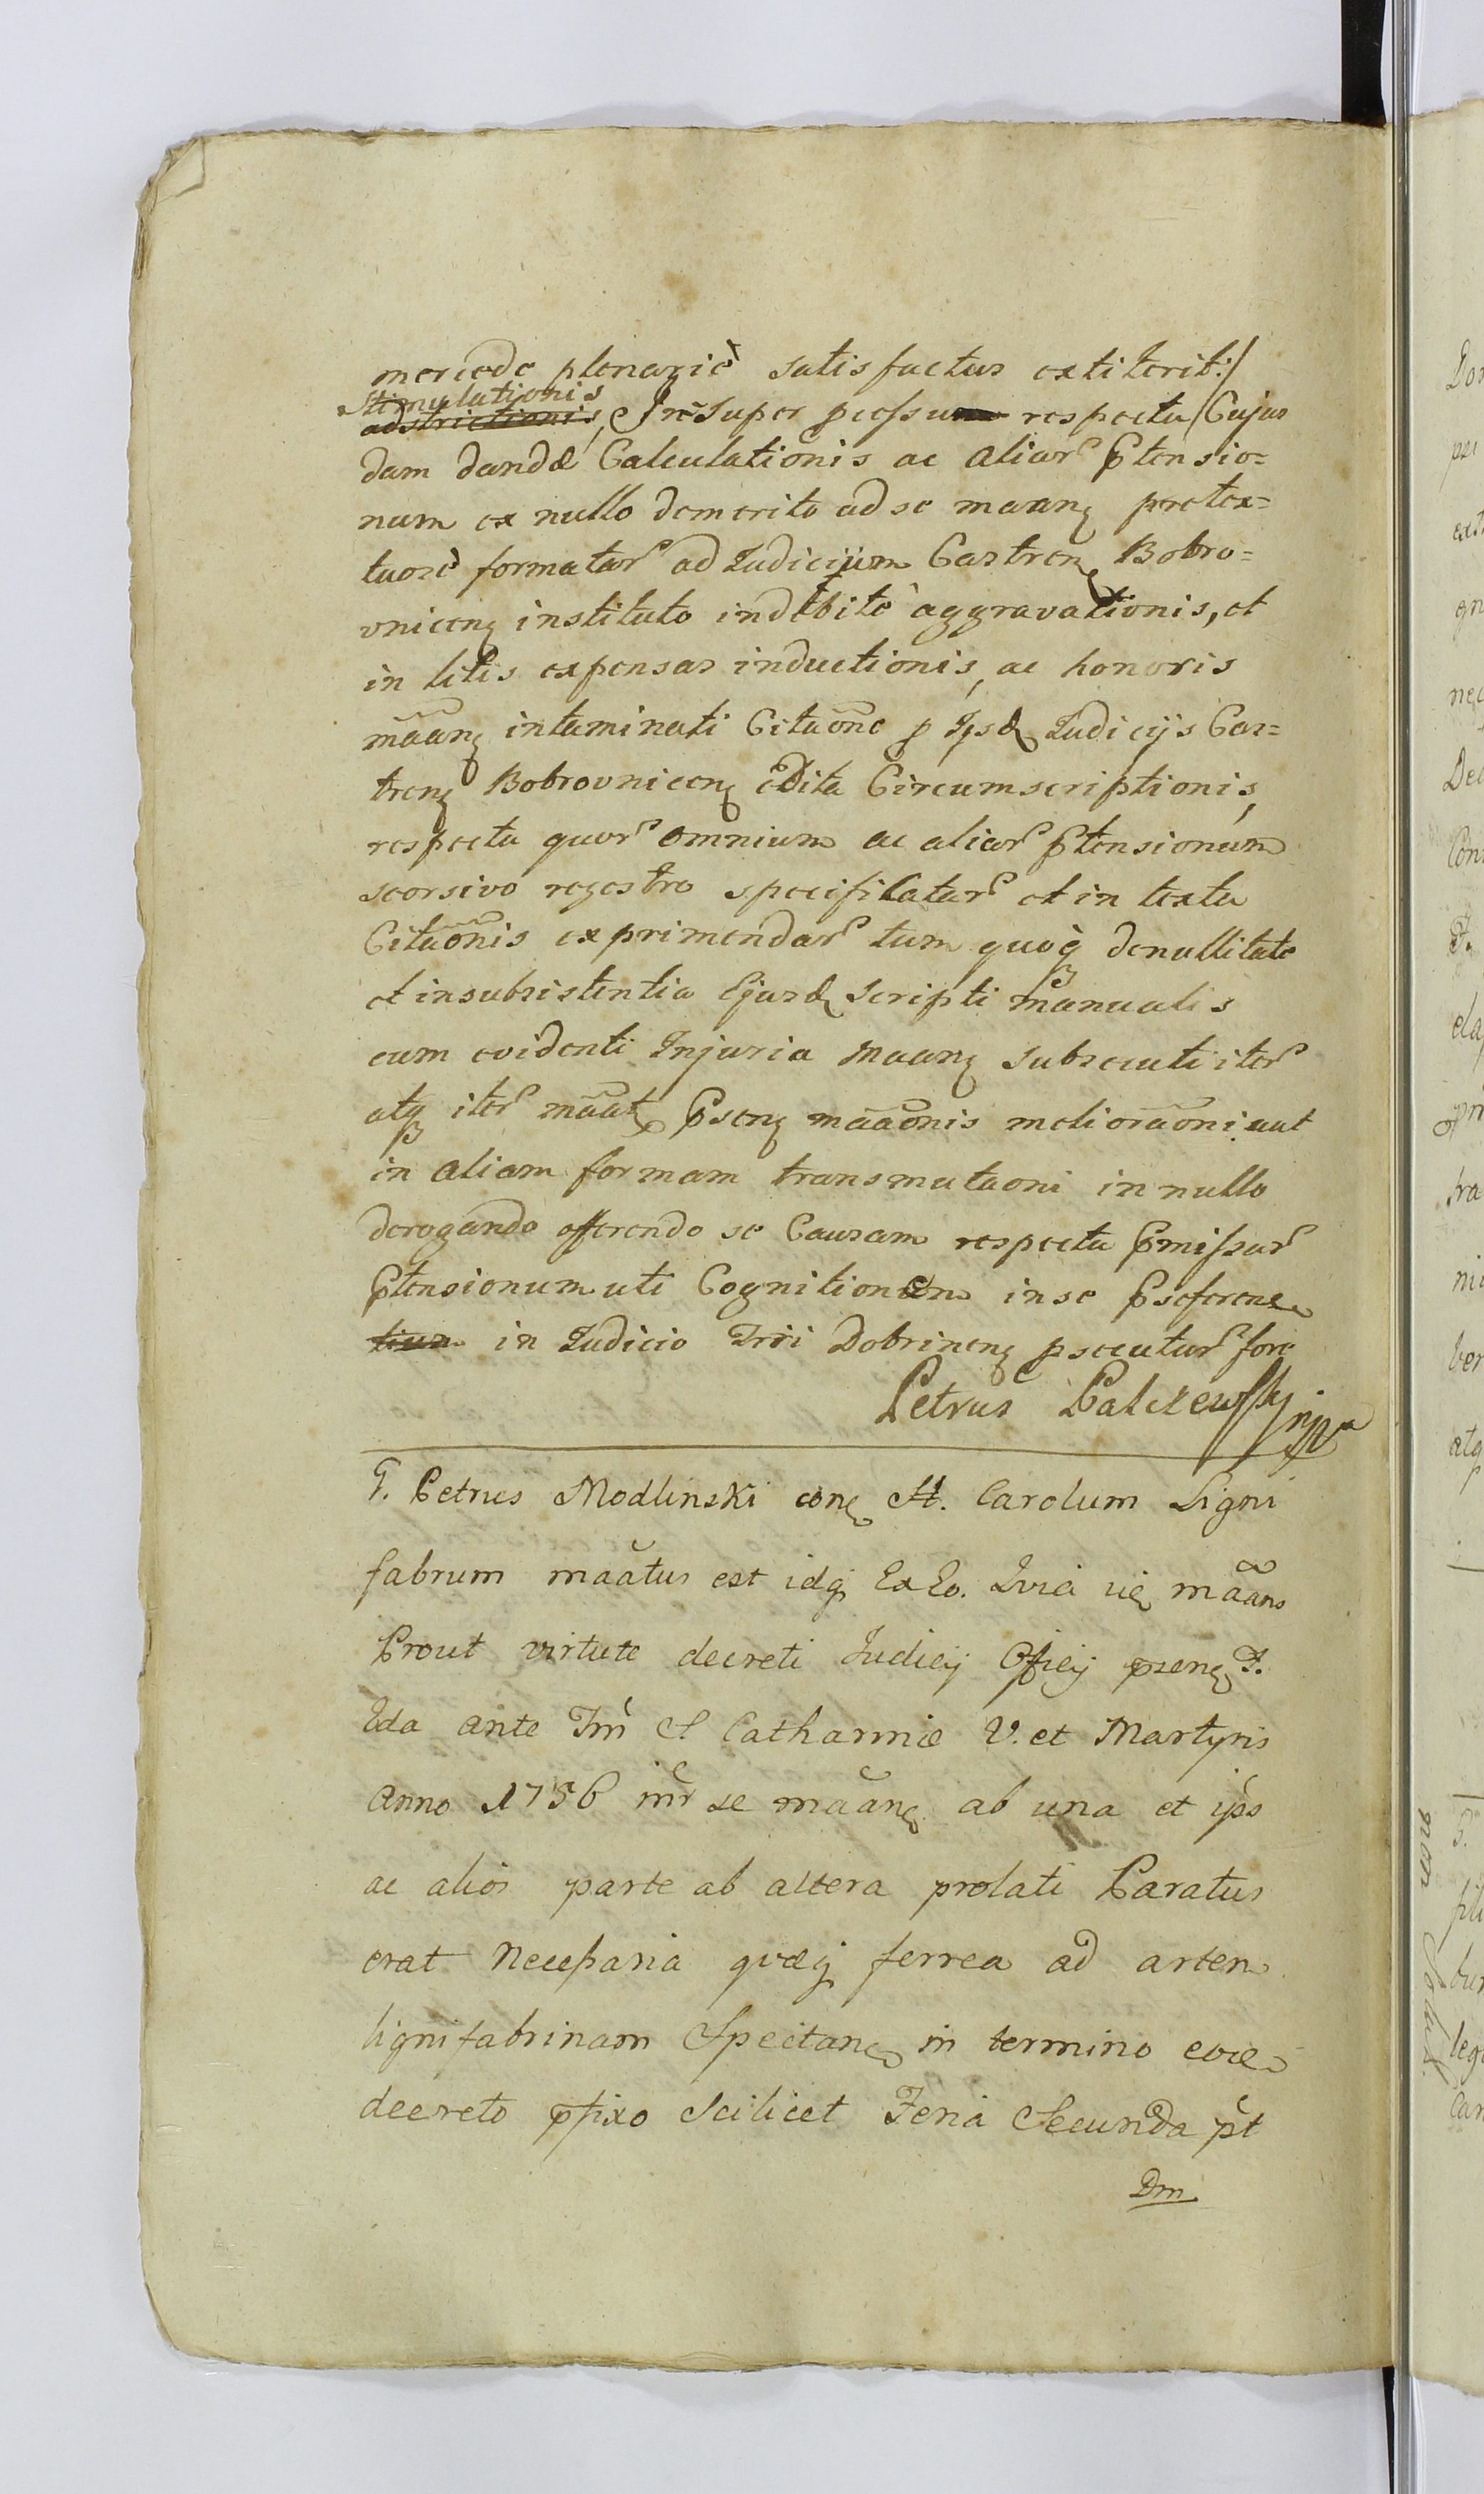 mercede plenariè satisfactus extiterit:/
Stimulationis
adstrictionis, Insuper pcessu respectu Cujus
dam dandæ Calculationis ac aliar Ptensio=
num ex nullo demerito ad se maanq pretex=
tuosè formatar ad Judicium Castrenq Bobro=
vnicenq instituto indebitè aggravationis, et
in litis expensas inductionis, ac honoris
māanq intaminati Citaōne p Ijsdq Judicijs Cas=
trenq Bobrovnicenq edita Circumscriptionis,
respectu quor omnium ac aliar Ptensionum
seorsivo regestro specificatar et in textu
Citaōnis exprimendar tum quoq de nullitate
et insubsistentia Ejusdq Scripti manualis
cum evidenti Injuria maanq subsecuti iter
atq iter māatq Psenq māaōnis melioraōni aut
in aliam formam transmutaoni in nullo
derogando offerendo se Causam respectu Pmissar
Ptensionum uti Cognitionem in se Pseferenq
tium in Judicio Trri Dobrinenq psecutur fore
Petrus Palczewsky mp
G. Petrus Modlinski conq H. Carolum Ligni
fabrum maātus est idq Ex Eo. Qvia iiq māans
Prout virtute decreti Judicij Officij psenq F.
Eda ante Fm S Catharinæ V. et Martyris
Anno 1756 intr se māanq ab una et ips
ac alios parte ab altera prolati Paratus
erat Necessaria quæq ferrea ad artem
lignifabrinam Spectanq in termino eoe
decreto pfixo scilicet Feria Secunda pt
Dm